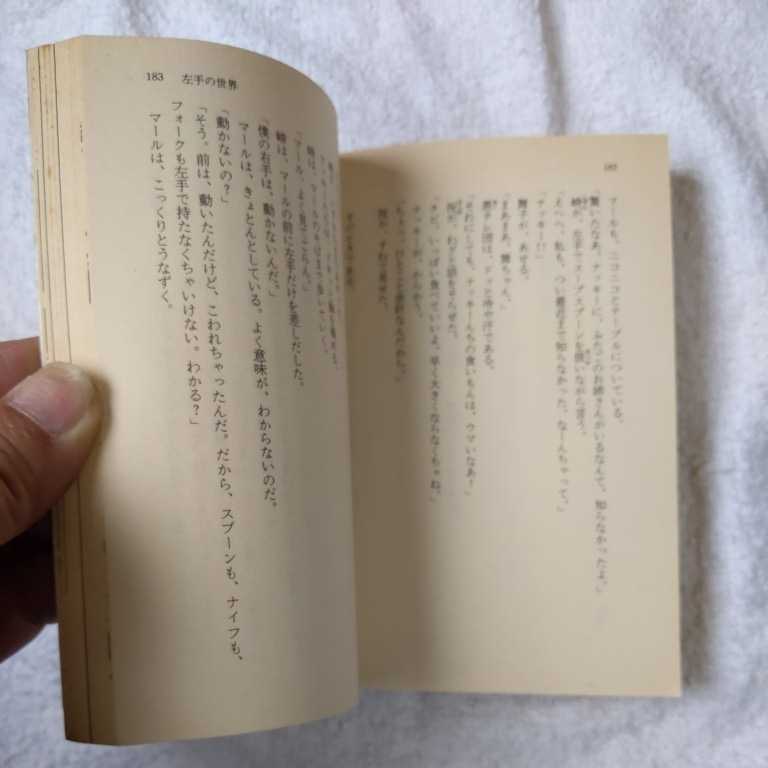 マールも、ニコニコとテーブルについている。
「驚いたなあ、ナッキーに、ふたつのお姉さんがいるなんて、知らなかったよ。」
が、左手でスープスプーンを使いながら言う。
「えへへ、私も、つい最近まで知らなかった、なーんちゃって。」
「ナッキー!!」
舞子が、あせる。
「まあまあ、舞ちゃん。」
団は、ドッと冷や汗である。
「それにしても、ナッキーんちの食いもんは、ウマいなあ!」
が、わざと話をそらせた。
いっぱい食べていいよ。早く大きくならなくちゃね。」
ナッキーが、からかう。
ひとこと余計なんだから。」
が、すねて見せた。
183 左手の世界
「マール、よく見てごらん。」
崎は、マールの前に左手だけを差しだした。
「僕の右手は、動かないんだ。」
マールは、きょとんとしている。よく意味が、わからないのだ。
「動かないの?」
「そう。前は、動いたんだけど、こわれちゃったんだ。だから、スプーンも、ナイフも、
フォークも左手で持たなくちゃいけない。わかる?」
マールは、こっくりとうなずく。